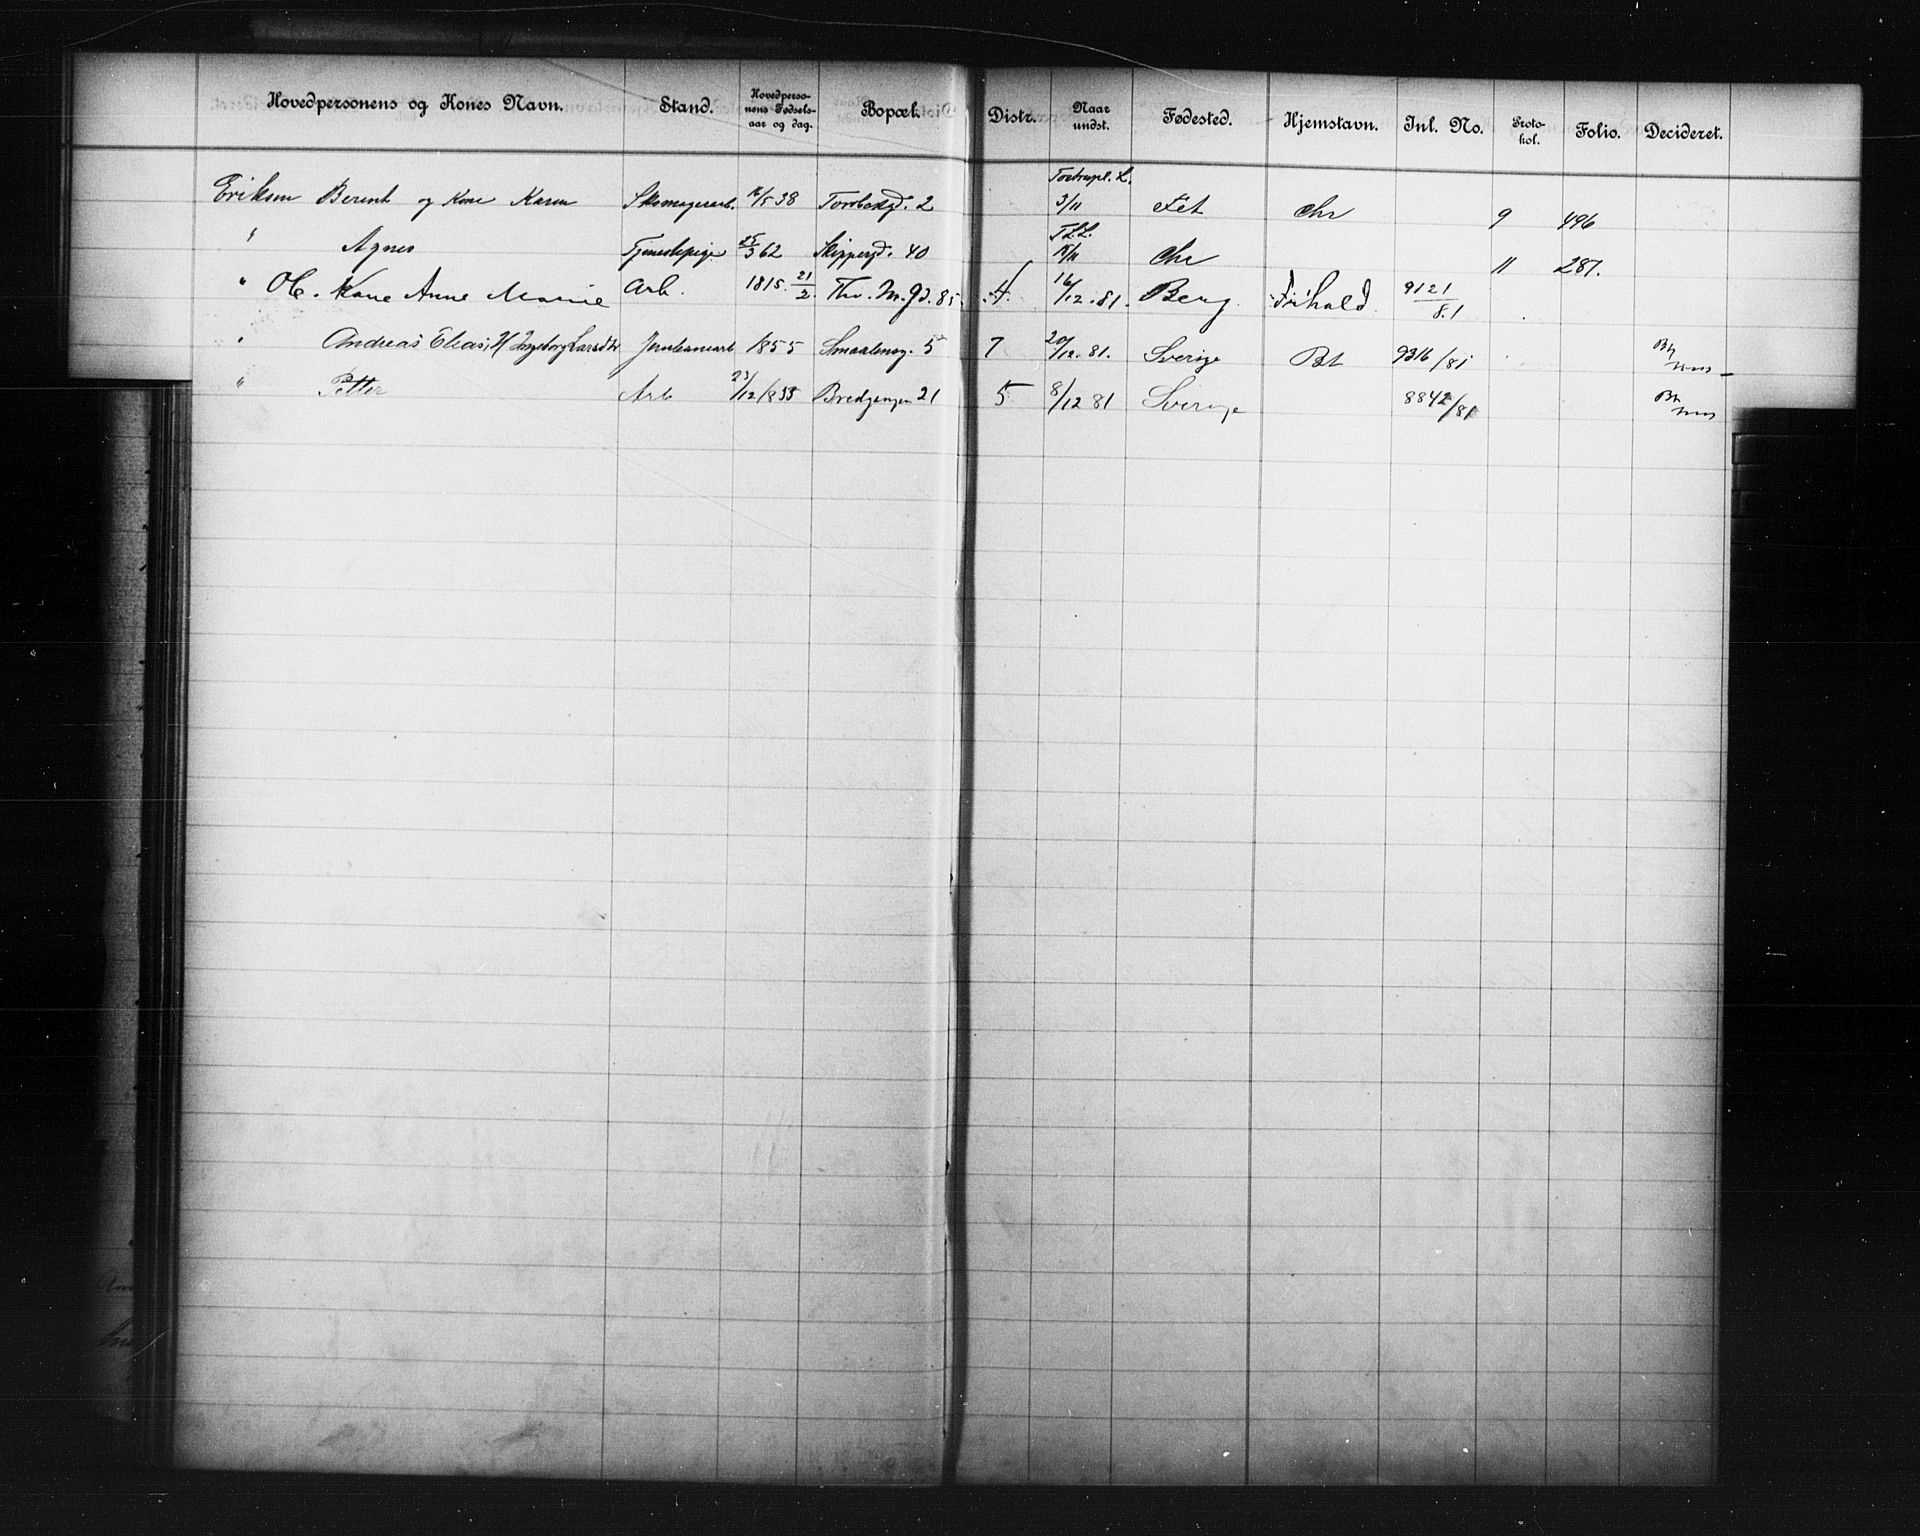 Hovedpersonens og Kones Navn. Stand. Hovedperso-nens Fødsels-aar og dag. Bopæl. Distr. Naar undst. Fødested. Hjemstavn. Inl. No. Proto-kol. Folio. Decideret.
Eriksen Berent og Kone Karen Skomagerarb. 16/5 38 Torvbakgd. 2 3/11 Fet Chr 9 496
" Agnes Tjenestepige 25/3 62 Skippergd. 40 15/11 Chr 11 287.
" Ole. Kone Anne Marie Arb. 1815. 21/2. Thv. M. gd. 85. 4. 16/12. 81. Berg. Frhald 9121/81
" Andreas Elias, H Ingeborg Larsdtr Jernbanearb 1855 Smaalensg. 5 7 20/12. 81. Sverige Bt 9316/81
" Petter Arb 23/12 1835 Bredgangen 21 5 8/12 81 Sverige 8842/81